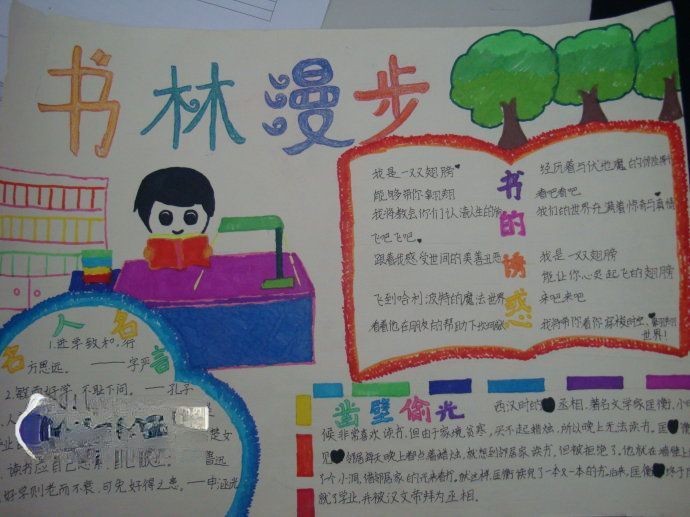 书林漫步
书的诱惑
我是一双翅膀
能够带你翱翔
我将教会你们认清人生的
飞吧飞吧。
跟着我感受世间的美善丑恶
飞到哈利波特的魔法世界
看看他在朋友的帮助下
经历着与伏地魔的
看吧看吧
我们的世界充满着惊奇与真情
我是一双翅膀
能让你心灵起飞的翅膀
来吧来吧
我将带你看你穿梭时空、翱翔
世界!
名人名言
1.进学致和,行
方思远。 ——字严
2.敏而好学,不耻下问。——孔子
好学则老而不衰,可免好得之患。——申涯光
凿壁偷光
西汉时的丞相,著名文学家匡衡,小
候非常喜欢读书,但由于家境贫寒,买不起蜡烛,所以晚上无法读书。匡
见邻居每天晚上都点着蜡烛,就想到邻居家读书,但被拒绝了。他就在墙壁上
了个小洞,借邻居家的光来看书。就这样,匡衡读完了一本又一本的书。后来,匡衡终于
就了学业,并被汉文帝拜为丞相。